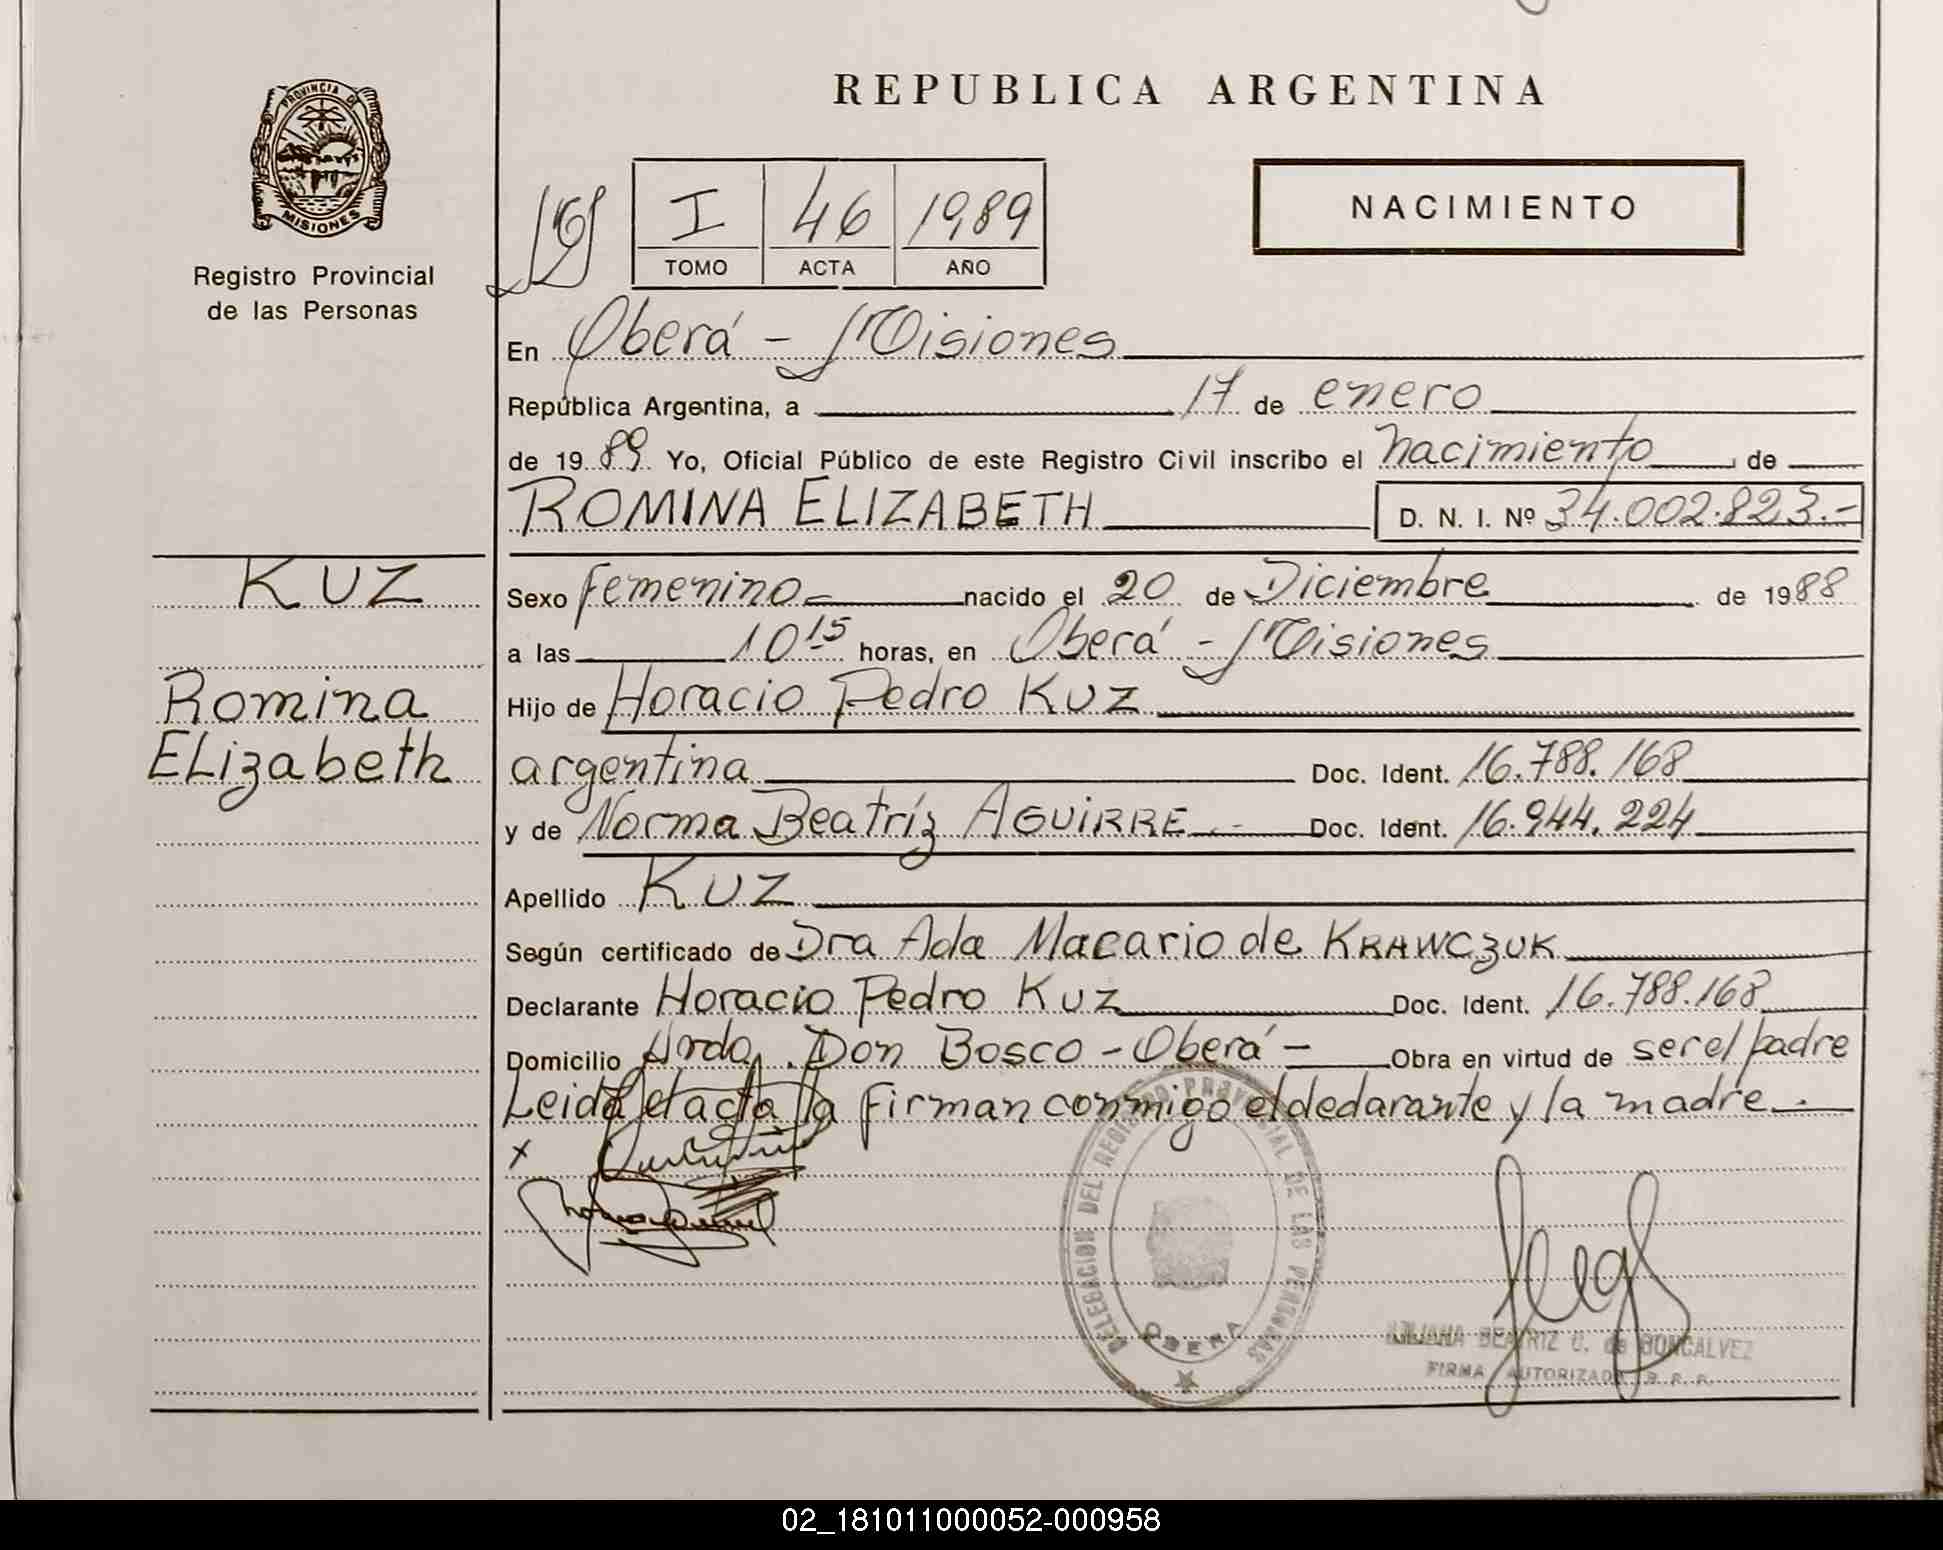 REPUBLICA ARGENTINA
PROVINCIA DE
MISIONES
Registro Provincial
de las Personas
I 46 1989
TOMO ACTA AÑO
NACIMIENTO
En Oberá - Misiones
República Argentina, a 17 de enero
de 1989 Yo, Oficial Público de este Registro Civil inscribo el nacimiento de
ROMINA ELIZABETH D. N. I. Nº 34.002.823.-
KUZ
Romina
ELizabeth
Sexo femenino.- nacido el 20 de Diciembre de 1988
a las 10 15 horas, en Oberá - Misiones
Hijo de Horacio Pedro KUZ
argentina Doc. Ident. 16.788.168
y de Norma Beatríz AGUIRRE.- Doc. Ident. 16.944.224
Apellido KUZ
Según certificado de Dra Ada Macario de KRAWCZUK
Declarante Horacio Pedro KUZ Doc. Ident. 16.788.168
Domicilio Don Bosco - Oberá - Obra en virtud de ser el padre
Leida el acta la firman conmigo el declarante y la madre.-
x
DELEGACION DEL REGISTRO PROVINCIAL DE LAS PERSONAS
OBERA
BEATRIZ de GONCALVEZ
FIRMA AUTORIZADA R. P. P.
02_181011000052-000958